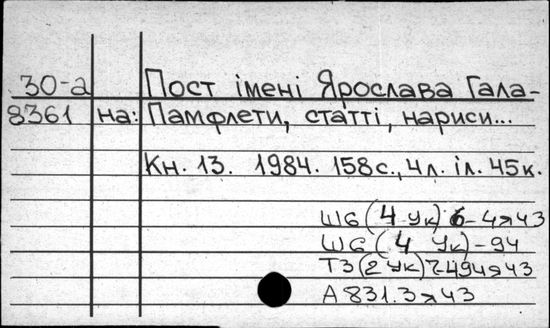 30-а Пост імені Ярослава Гала-
8361 на: Памфлети, статті, нариси...
Кн. 13. 1984. 158с., 4л. іл. 45к.
Ш6(4 Ук) 6-4я43
Ш6(4 Ук)-94
Т3(2 Ук)7-494я43
А831.3я43